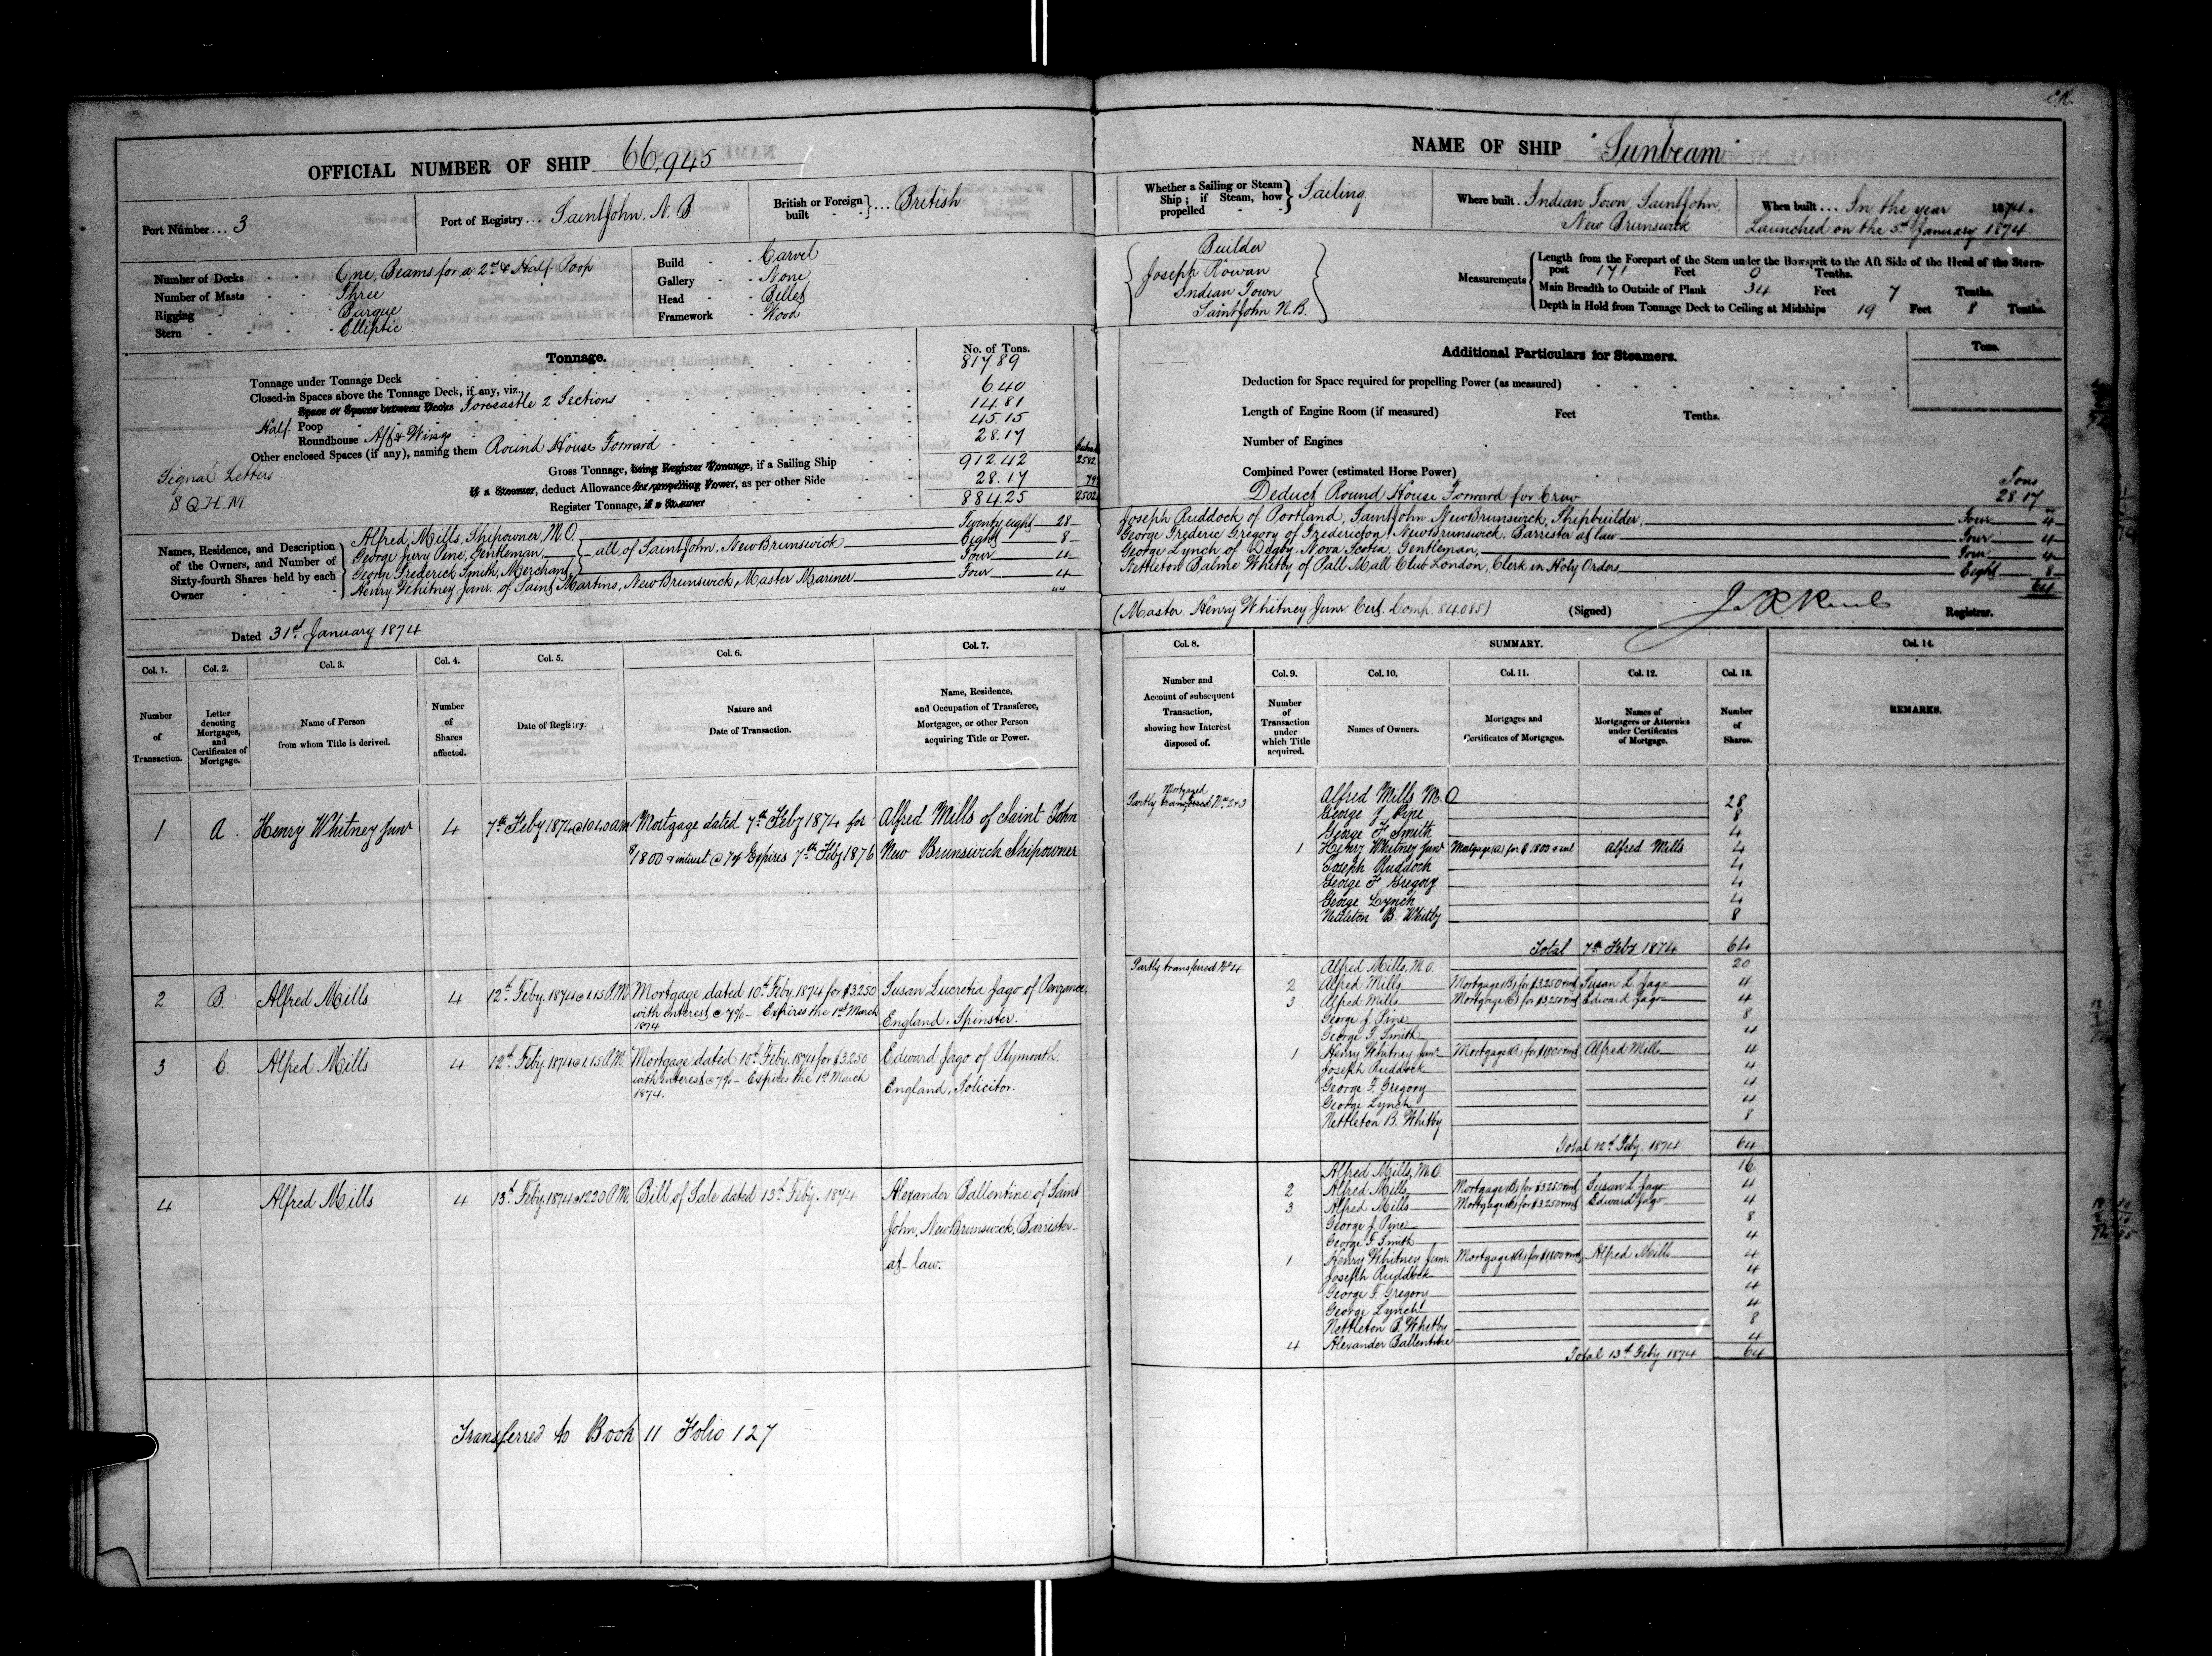 OFFICIAL NUMBER OF SHIP 66,945
Port Number ... 3
Port of Registry ... Saint John, N. B.
British or Foreign built } ... British
Number of Decks One, Beams for a 2nd & Half Poop
Number of Masts Three
Rigging Barque
Stern Elliptic
Build Carvel
Gallery None
Head Billet
Framework Wood
Tonnage.
No. of Tons.
Tonnage under Tonnage Deck 817.89
Closed-in Spaces above the Tonnage Deck, if any, viz.
Space or Spaces between Decks Forecastle 2 Sections 6.40
Half Poop 14.81
Roundhouse Aft & Wings 45.15
Other enclosed Spaces (if any), naming them Round House Forward 28.17
Gross Tonnage, being Register Tonnage, if a Sailing Ship 912.42 2582
If a Steamer, deduct Allowance for propelling Power, as per other Side 28.17 79
Register Tonnage, if a Steamer 884.25 2502
Signal Letters
S Q H M
Names, Residence, and Description of the Owners, and Number of Sixty-fourth Shares held by each Owner
Alfred Mills, Shipowner M.O. Twenty eight 28
George Jury Pine, Gentleman Eight 8
George Frederick Smith, Merchant Four 4
all of Saint John, New Brunswick
Henry Whitney Junr. of Saint Martins, New Brunswick, Master Mariner Four 4
Dated 31st January 1874
Col. 1. Col. 2. Col. 3. Col. 4. Col. 5. Col. 6. Col. 7.
Number of Transaction.
Letter denoting Mortgages, and Certificates of Mortgage.
Name of Person from whom Title is derived.
Number of Shares affected.
Date of Registry.
Nature and Date of Transaction.
Name, Residence, and Occupation of Transferee, Mortgagee, or other Person acquiring Title or Power.
1 A. Henry Whitney Junr 4 7th Feby 1874 @ 10 40 am Mortgage dated 7th Feby 1874 for Alfred Mills of Saint John
$1800 & interest @ 7% Expires 7th Feby 1876 New Brunswick Shipowner
2 B. Alfred Mills 4 12th Feby. 1874 @ 1.15 P.M. Mortgage dated 10th Feby. 1874 for $3250 Susan Lucretia Jago of Penzance,
with interest @ 7% - Expires the 1st March England, Spinster.
1874
3 C. Alfred Mills 4 12th Feby. 1874 @ 1.15 P.M. Mortgage dated 10th Feby. 1874 for $3250 Edward Jago of Plymouth
with interest @ 7% - Expires the 1st March England, Solicitor.
1874.
4 Alfred Mills 4 13th Feby. 1874 @ 12.20 P.M. Bill of Sale dated 13th Feby. 1874 Alexander Ballentine of Saint
John, New Brunswick, Barrister-
at-law.
Transferred to Book 11 Folio 127
NAME OF SHIP "Sunbeam"
Whether a Sailing or Steam Ship ; if Steam, how propelled } Sailing
Where built Indian Town, Saint John,
New Brunswick
When built ... In the year 1874.
Launched on the 5th January 1874
Builder
Joseph Rowan
Indian Town
Saint John N.B.
Measurements
Length from the Forepart of the Stem under the Bowsprit to the Aft Side of the Head of the Stern-
post 171 Feet 0 Tenths.
Main Breadth to Outside of Plank 34 Feet 7 Tenths.
Depth in Hold from Tonnage Deck to Ceiling at Midships 19 Feet 8 Tenths.
Additional Particulars for Steamers.
Tons.
Deduction for Space required for propelling Power (as measured)
Length of Engine Room (if measured) Feet Tenths.
Number of Engines
Combined Power (estimated Horse Power)
Tons
Deduct Round House Forward for Crew 28.17
Joseph Ruddock of Portland, Saint John New Brunswick, Shipbuilder, Four 4
George Frederic Gregory of Fredericton, New Brunswick, Barrister at law Four 4
George Lynch of Digby, Nova Scotia, Gentleman, Four 4
Nettleton Balme Whitby of Pall Mall Club London, Clerk in Holy Orders Eight 8
64
(Master Henry Whitney Junr Cert. Comp. 84.085) (Signed) Registrar.
Col. 8. SUMMARY. Col. 14.
Col. 9. Col. 10. Col. 11. Col. 12. Col. 13.
Number and Account of subsequent Transaction, showing how Interest disposed of.
Number of Transaction under which Title acquired.
Names of Owners.
Mortgages and Certificates of Mortgages.
Names of Mortgagees or Attornies under Certificates of Mortgage.
Number of Shares.
REMARKS.
Mortgaged
Partly transferred Nos 2 & 3
Alfred Mills M.O 28
George J Pine 8
George F Smith 4
1 Henry Whitney Junr Mortgage (A) for $1800 & int Alfred Mills 4
Joseph Ruddock 4
George F Gregory 4
George Lynch 4
Nettleton B. Whitby 8
Total 7th Feby 1874 64
Partly transferred No 4
Alfred Mills, M.O. 20
2 Alfred Mills Mortgage (B) for $3250 & int Susan L. Jago 4
3 Alfred Mills Mortgage (C) for $3,250 & int Edward Jago 4
George J. Pine 8
George F. Smith 4
1 Henry Whitney Junr. Mortgage (A) for $1,800 & int Alfred Mills 4
Joseph Ruddock 4
George F. Gregory 4
George Lynch 4
Nettleton B. Whitby 8
Total 12th Feby. 1874 64
Alfred Mills, M.O. 16
2 Alfred Mills Mortgage (B) for $3250 & int Susan L. Jago 4
3 Alfred Mills Mortgage (C) for $3,250 & int Edward Jago 4
George J. Pine 8
George F. Smith 4
1 Henry Whitney Junr. Mortgage (A) for $1,800 & int Alfred Mills 4
Joseph Ruddock 4
George F. Gregory 4
George Lynch 4
Nettleton B. Whitby 8
4 Alexander Ballentine 4
Total 13th Feby. 1874 64